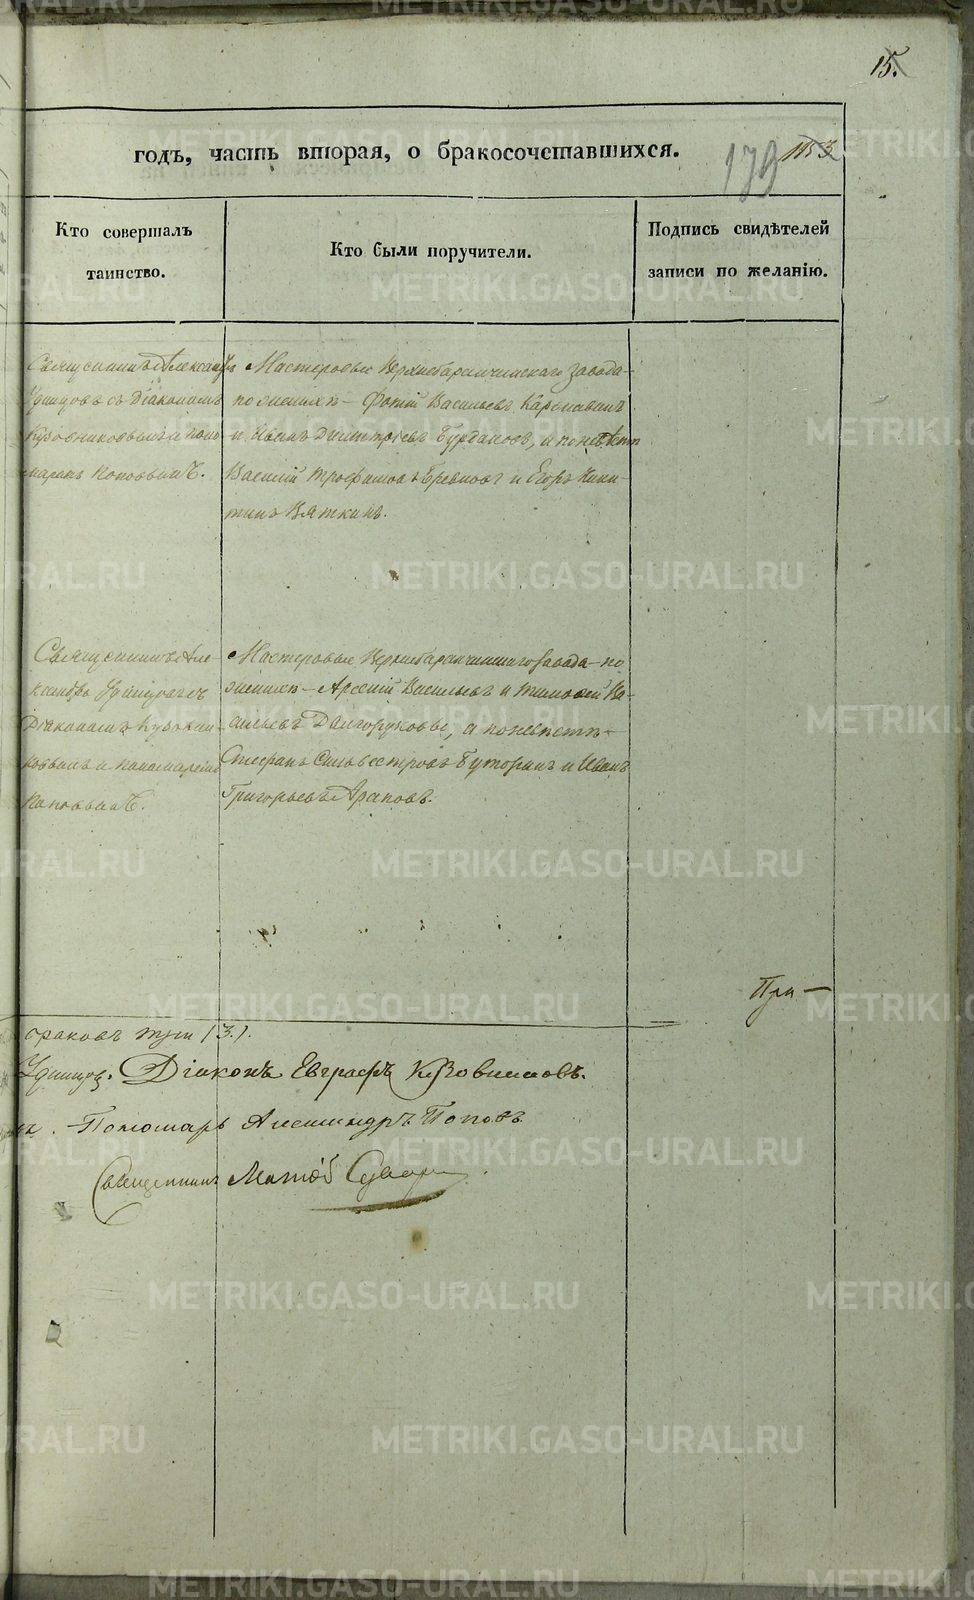 15.
годъ, часть вторая, о бракосочетавшихся.
179
Кто совершалъ таинство.
Кто были поручители.
Подпись свидѣтелей записи по желанію.
Священникъ Александръ
Удинцовъ съ Діакономъ
и поно-
маремъ Поповымъ.
Мастеровые Верхнебаранчинскаго завода
по женихѣ – Фотій Васильевъ
и Иванъ Димитріевъ Бурдаковъ, и по невѣстѣ
Василій Трофимовъ Бревновъ и Егоръ Ники-
тинъ Вяткинъ.
Священникъ Але-
ксандръ Удинцовъ съ
Діакономъ Кузовни-
ковымъ и пономаремъ
Поповымъ.
Мастеровые Верхнебаранчинскаго завода – по
женихѣ – Арсеній Васильевъ и Тимофей Ва-
сильевъ Долгоруковы, а по невѣстѣ –
Стефанъ Сильвестровъ Буторинъ и Иванъ
Григорьевъ Араповъ.
При –
браковъ три /3./.
Удинцовъ. Діаконъ Евграфъ Кузовниковъ.
Пономарь Александръ Поповъ
Священникъ
METRIKI.GASO-URAL.RU